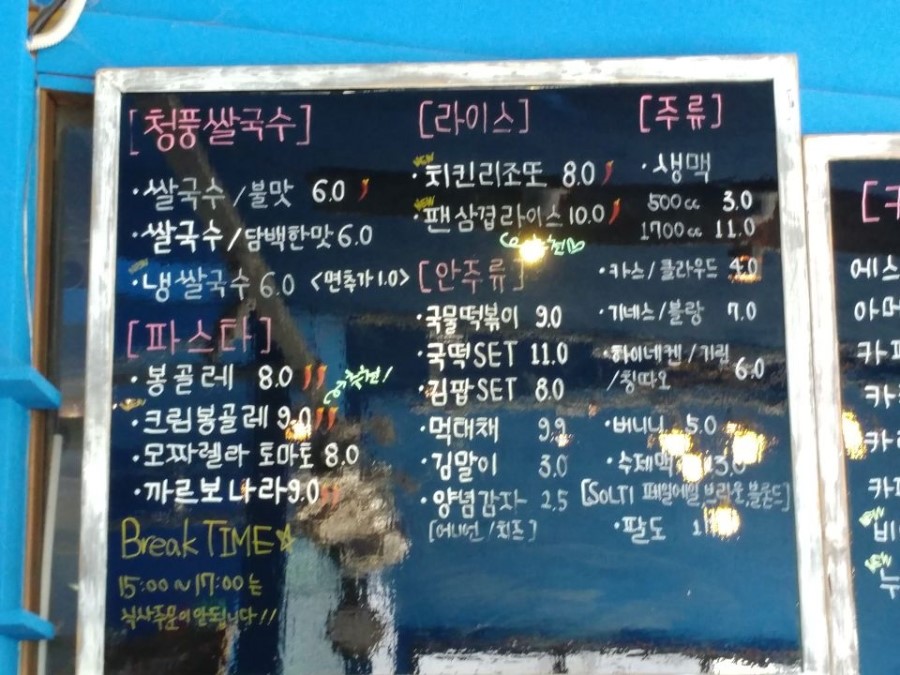 [청풍쌀국수]
·쌀국수/불맛 6.0
·쌀국수/담백한맛 6.0
·냉쌀국수 6.0 <면추가 1.0>
[파스타]
·봉골레 8.0 추천!
·크림봉골레 9.0
·모짜렐라 토마토 8.0
·까르보나라 9.0
Break TIME☆
15:00~17:00는
식사주문이 안됩니다!!
[라이스]
NEW
·치킨리조또 8.0
NEW
·팬삼겹라이스 10.0
[안주류]
·국물떡볶이 9.0
·국떡SET 11.0
·김팝SET 8.0
·먹태채 9.9
·김말이 3.0
·양념감자 2.5
[어니언/치즈]
[주류]
·생맥
500cc 3.0
1700cc 11.0
·카스/클라우드 4.0
·기네스/블랑 7.0
·하이네켄/기린
/칭따오 6.0
·버니니 5.0
·수제맥
[SOLTI 페일에일,브라운,블론드]
·팔도
에스
아메
카페
카
카
카페
NEW
NEW